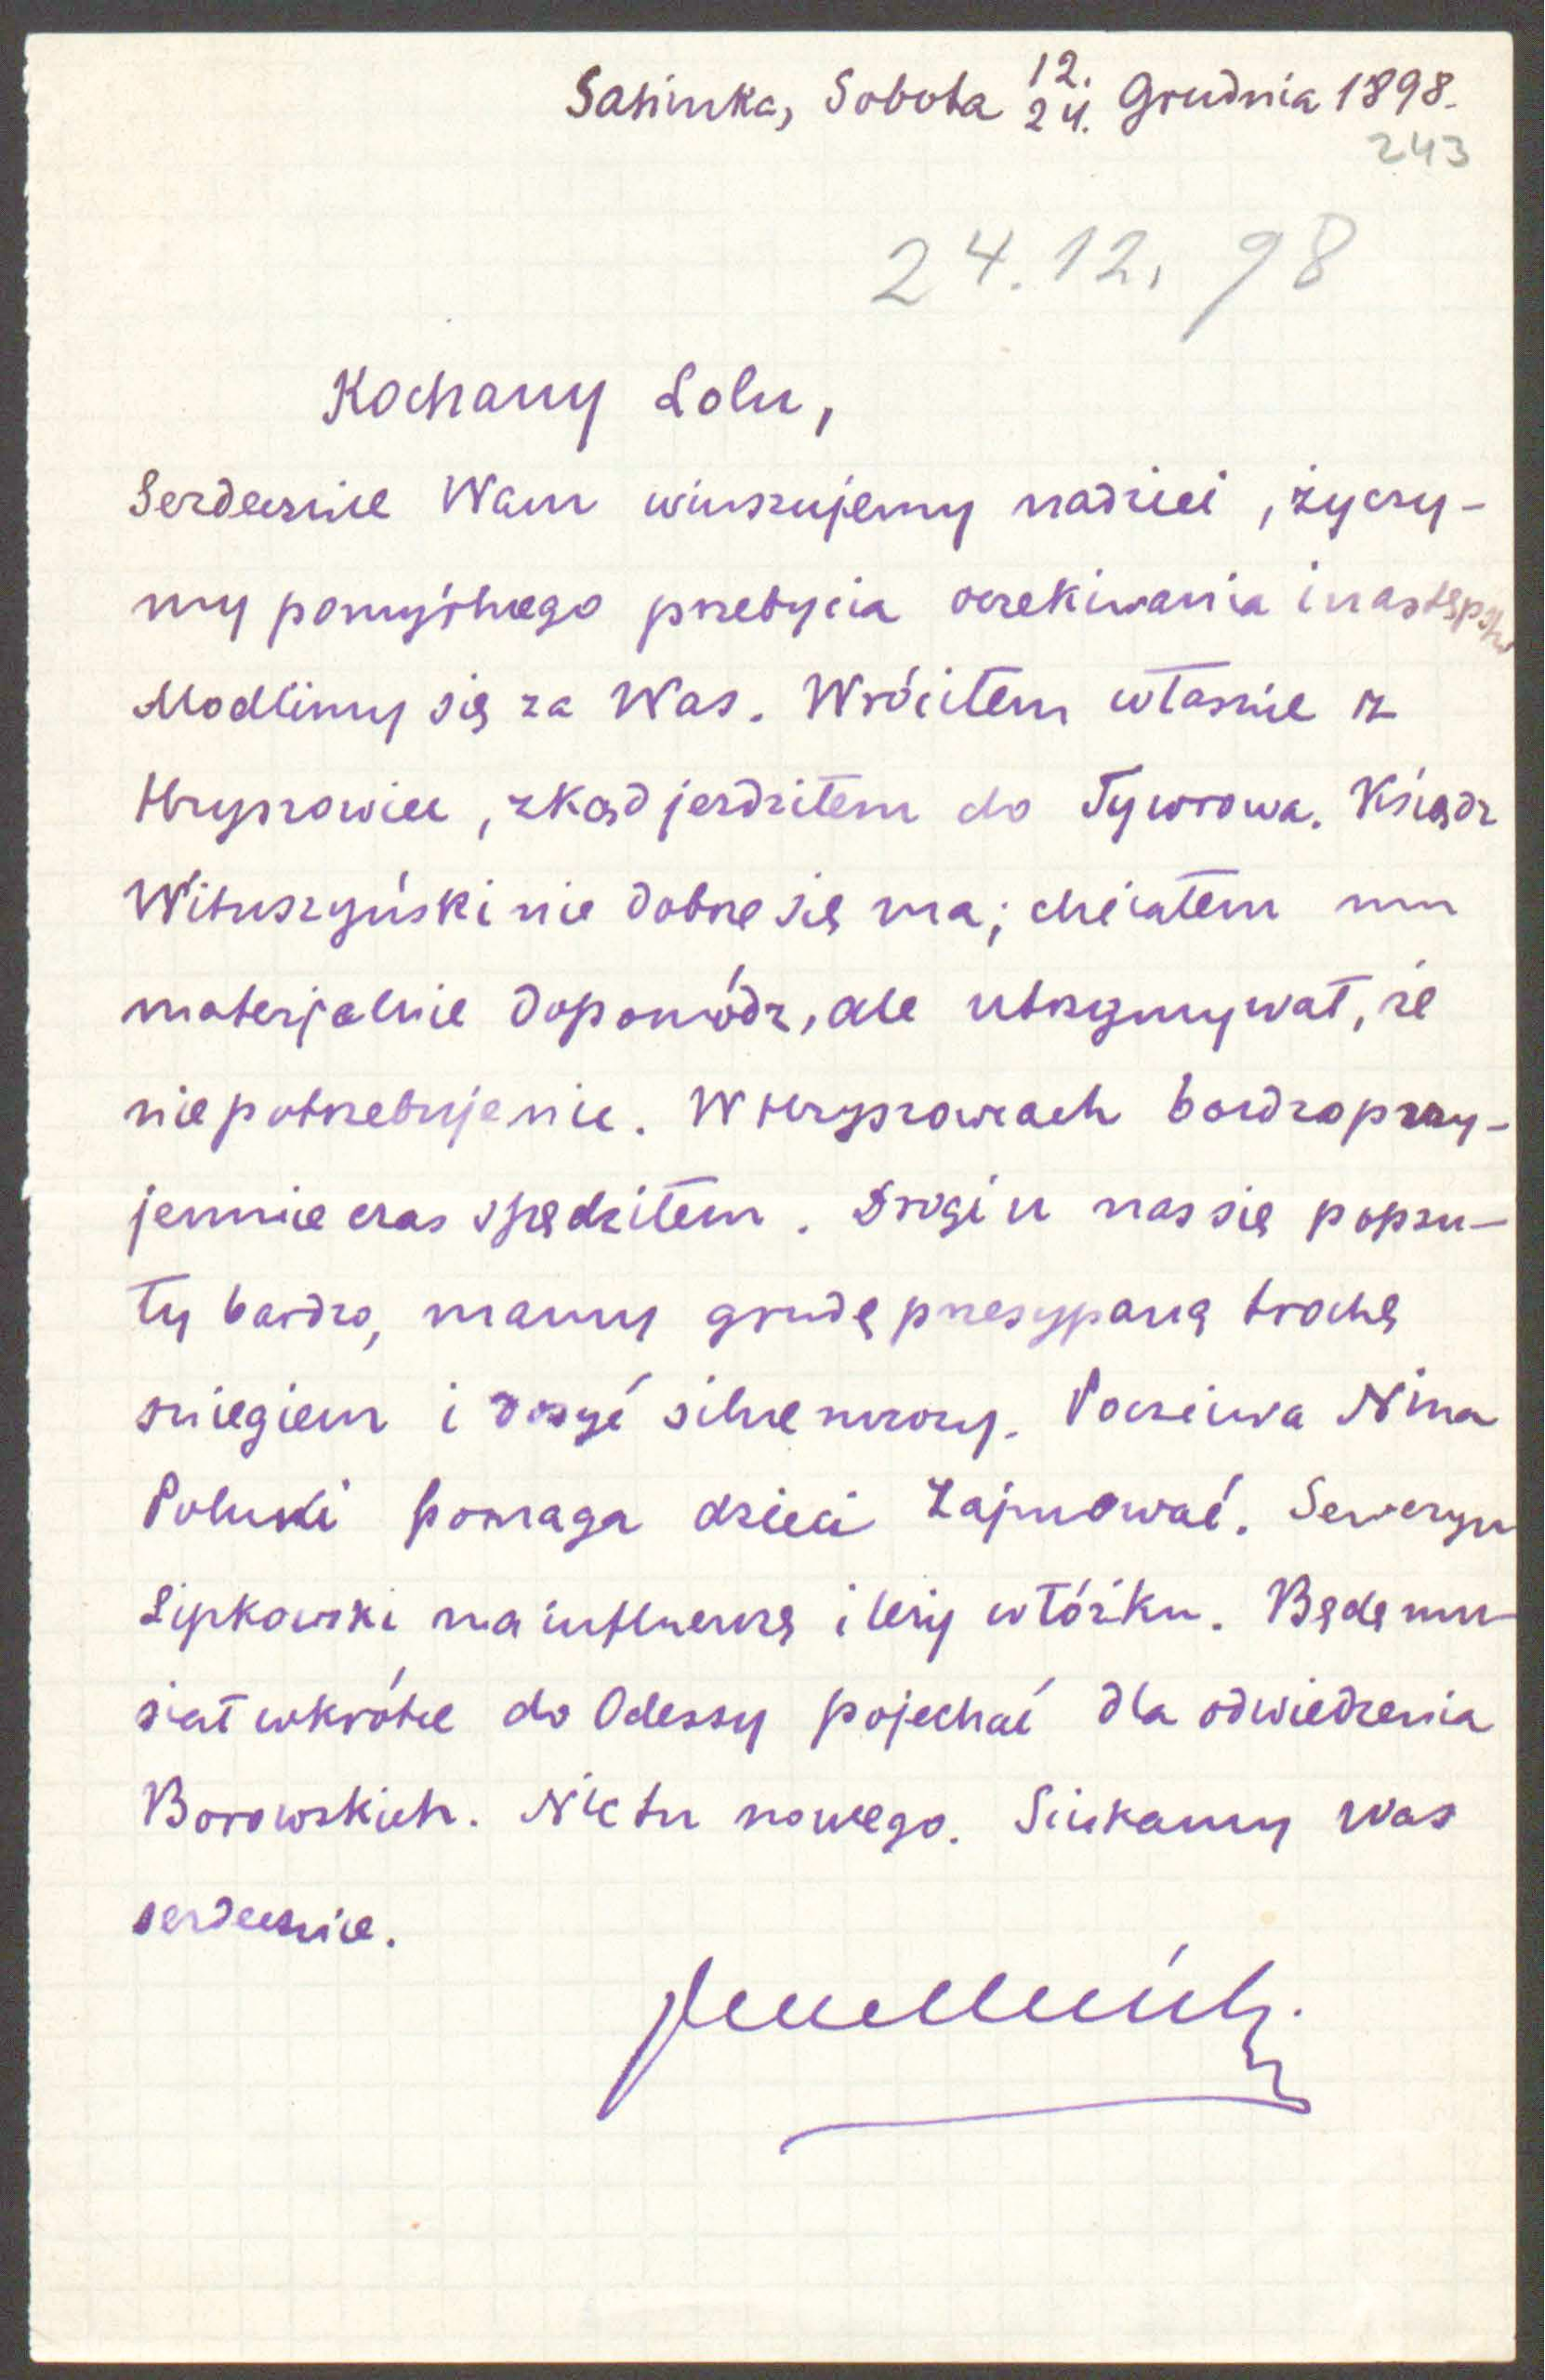 Satinka, Sobota 12./24. Grudnia 1898.
243
24.12.98
Kochany Lolu,
Serdecznie Wam winszujemy nadziei, życzy-
my pomyślnego przebycia oczekiwania i następstw
Modlimy się za Was. Wróciłem właśnie z
Hryszowiec, zkąd jeździłem do Tywrowa. Ksiądz
Wituszyński nie dobrze się ma; chciałem mu
materjalnie dopomódz, ale utrzymywał, że
nie potrzebuje nic. W Hryszowcach bardzo przy-
jemnie czas spędziłem. Drogi u nas się popsu-
ły bardzo, mamy grudę przesypaną trochę
śniegiem i dosyć silne mrozy. Poczciwa Nina
pomaga dzieci zajmować. Seweryn
Lipkowski ma influenzę i leży w łóżku. Będę mu-
siał wkrótce do Odessy pojechać dla odwiedzenia
Borowskich. Nic tu nowego. Ściskamy Was
serdecznie.